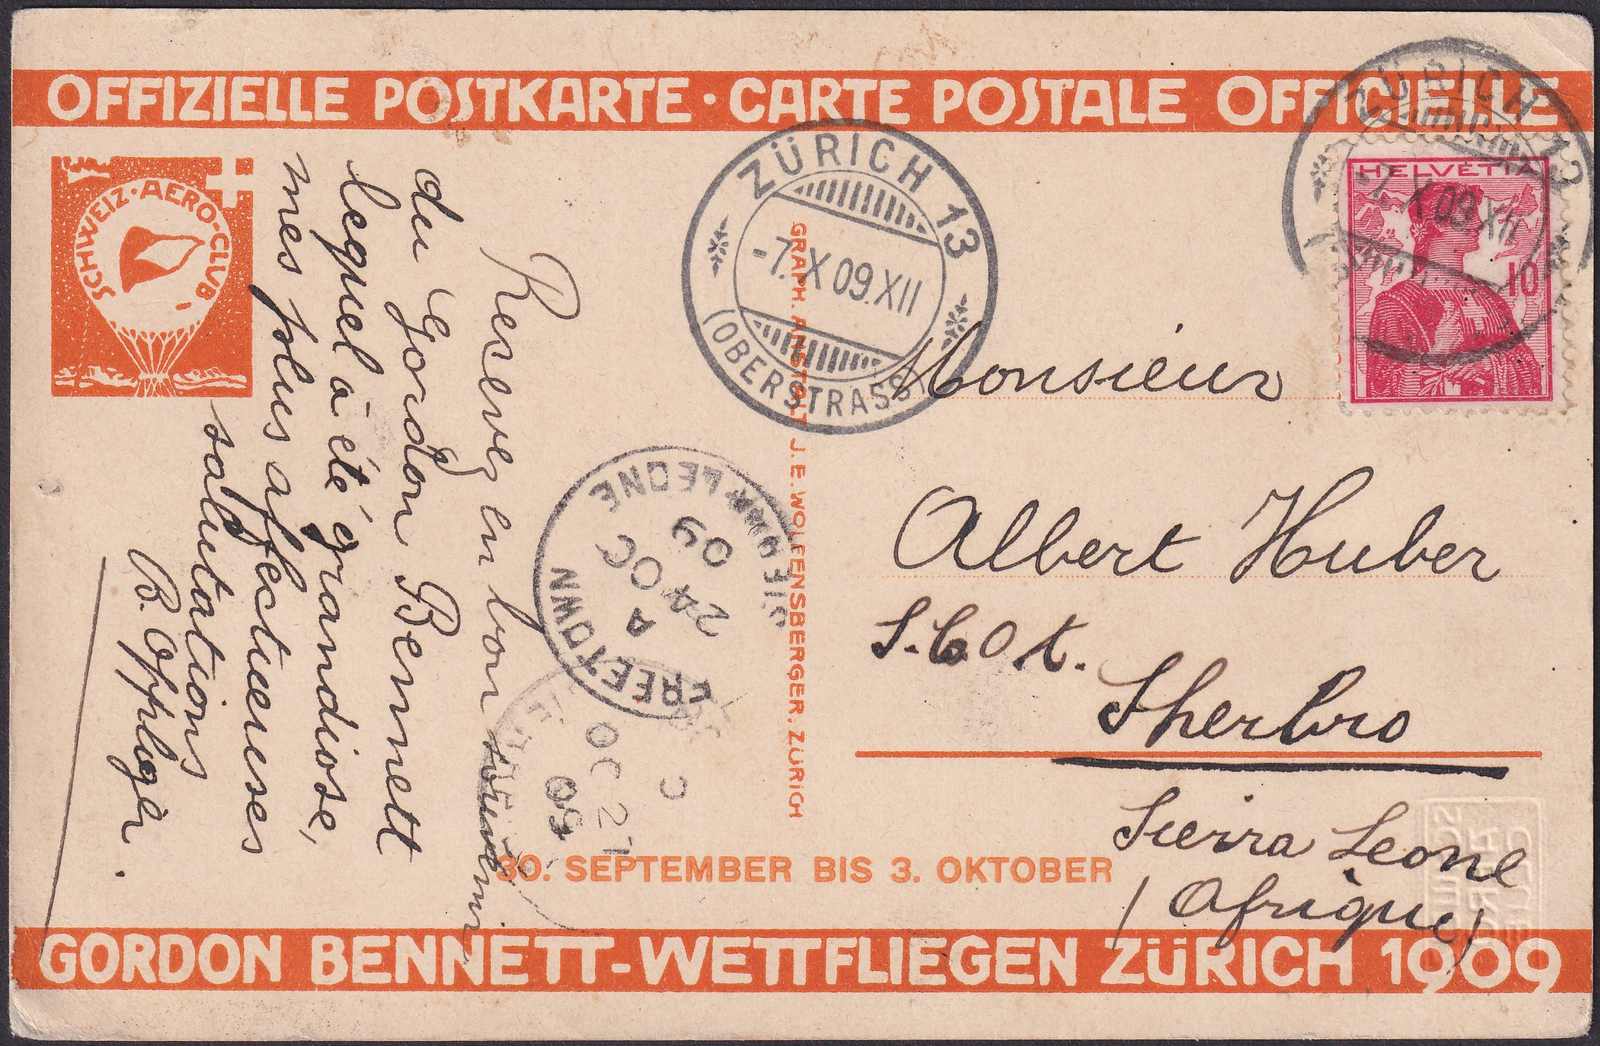 OFFIZIELLE POSTKARTE · CARTE POSTALE OFFICIELLE
SCHWEIZ · AERO-CLUB
ZÜRICH 13
-7.X 09.XII
(OBERSTRASS)
ZÜRICH 13
-7.X 09.XII
HELVETIA
10
Recevez en bon souvenir
du Gordon Bennett
lequel a été grandiose,
mes plus affectueuses
salutations
GRAPH. ANSTALT J. E. WOLFENSBERGER, ZÜRICH
FREETOWN
SIERRA LEONE
A
24 OC
09
OC 27
09
Monsieur
Albert Huber
Sherbro
Sierra Leone
(Afrique)
30. SEPTEMBER BIS 3. OKTOBER
GORDON BENNETT-WETTFLIEGEN ZÜRICH 1909